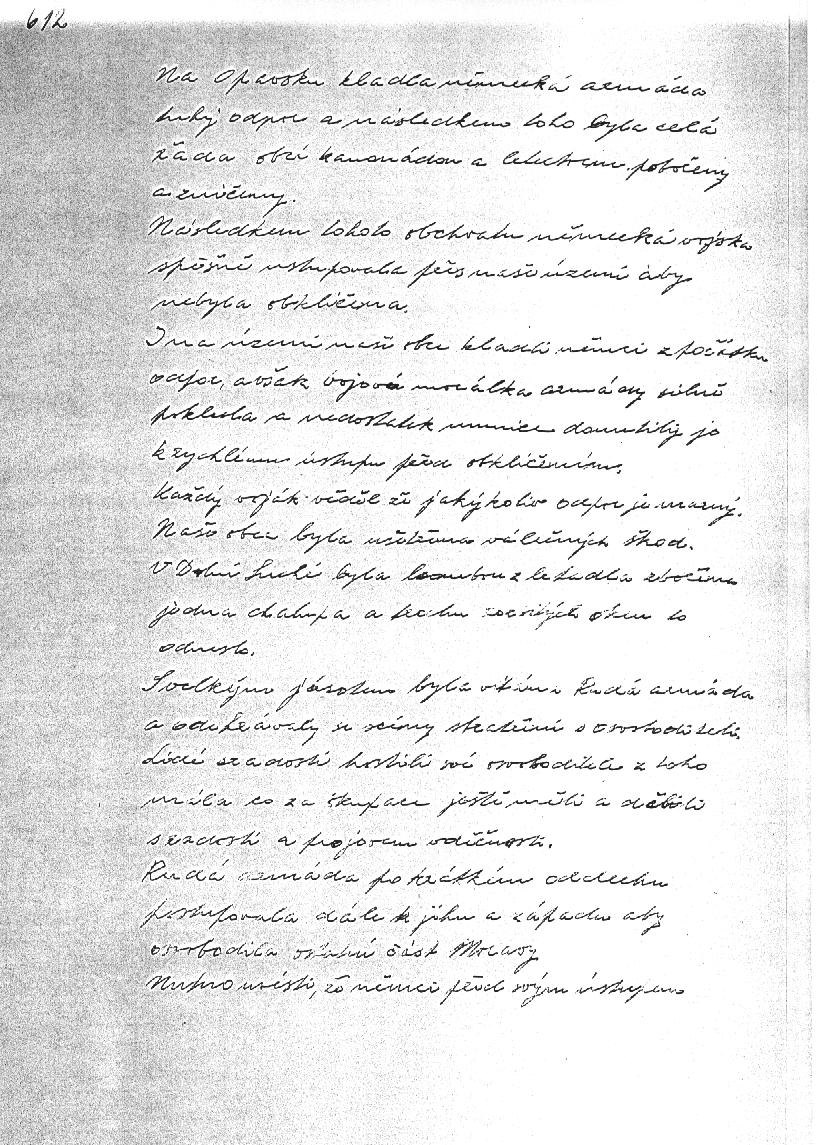 612
Na Opavsku kladla německá armáda
tuhý odpor a následkem toho byla celá
řada obcí kanonádou a letectvem pobořeny
a zničeny.
Následkem tohoto obchvatu německá vojska
spěšně ustupovala přes naše území aby
nebyla obklíčena.
I na území naší obce kladli němci z počátku
odpor, avšak bojová morálka armády silně
poklesla a nedostatek munice donutily je
k rychlému ústupu před obklíčením.
Každý voják věděl že jakýkoliv odpor je marný.
Naše obec byla ušetřena válečných škod.
V Dolní Lhotě byla bombou z letadla zbořena
jedna chalupa a trochu oken to
odneslo.
S velkým jásotem byla vítána Rudá armáda
a odehrávaly se scény shledání s osvoboditeli.
Lidé s radostí hostili své osvoboditele z toho
mála co za okupace ještě měli a dělali
s radostí a projevem vděčnosti.
Rudá armáda po krátkém oddechu
postupovala dále k jihu a západu aby
osvobodila ostatní část Moravy
Nutno uvésti, že němci před svým ústupem